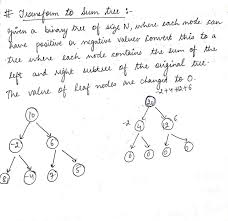 # Transform to Sum tree :-
Given a binary tree of size N, where each node can
have positive or negative values convert this to a
tree where each node contains the sum of the
left and right subtree of the original tree.
The value of leaf nodes are changed to 0.
-2+4+12+6
10
20
-2 6
-2 4 12 6
8 -4 7 5
0 0 0 0